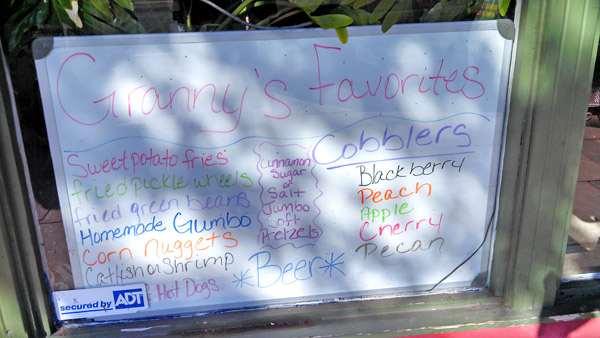 Granny's Favorites
Sweet potato fries
fried pickle wheels
fried green beans
Homemade Gumbo
Corn Nuggets
Catfish or Shrimp
Hot Dogs
Cinnamon
Sugar
or
Salt
Jumbo
Soft
Pretzels
*Beer*
Cobblers
Blackberry
Peach
Apple
Cherry
Pecan
secured by ADT